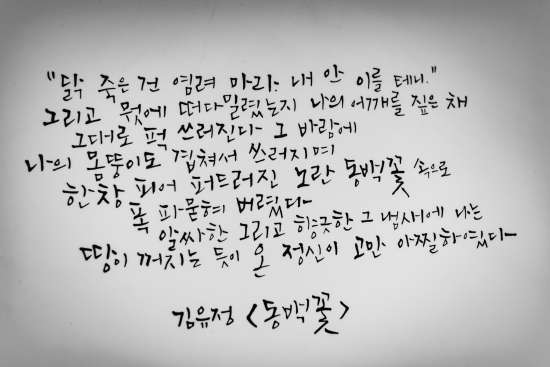 "닭 죽은 건 염려 마라. 내 안 이를 테니."
그리고 뭣에 떠다밀렸는지 나의 어깨를 짚은 채
그대로 퍽 쓰러진다. 그 바람에
나의 몸뚱이도 겹쳐서 쓰러지며
한창 피어 퍼드러진 노란 동백꽃 속으로
폭 파묻혀 버렸다.
알싸한 그리고 향긋한 그 냄새에 나는
땅이 꺼지는 듯이 온 정신이 고만 아찔하였다
김유정 <동백꽃>